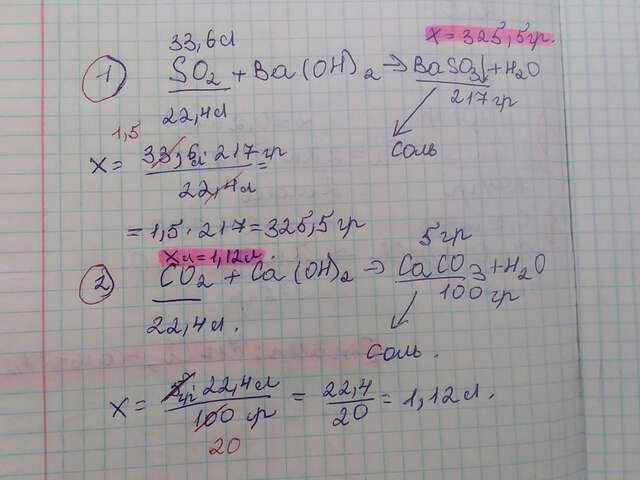 33,6л x = 325,5гр.
1) SO2 + Ba(OH)2 → BaSO3↓ + H2O
22,4л 217гр
соль
1,5
x = 33,6л · 217гр =
22,4л
= 1,5 · 217 = 325,5гр
xл = 1,12л. 5гр
2) CO2 + Ca(OH)2 → CaCO3 + H2O
22,4л. 100гр
соль.
x = 5гр · 22,4л / 100гр = 22,4 / 20 = 1,12л.
20